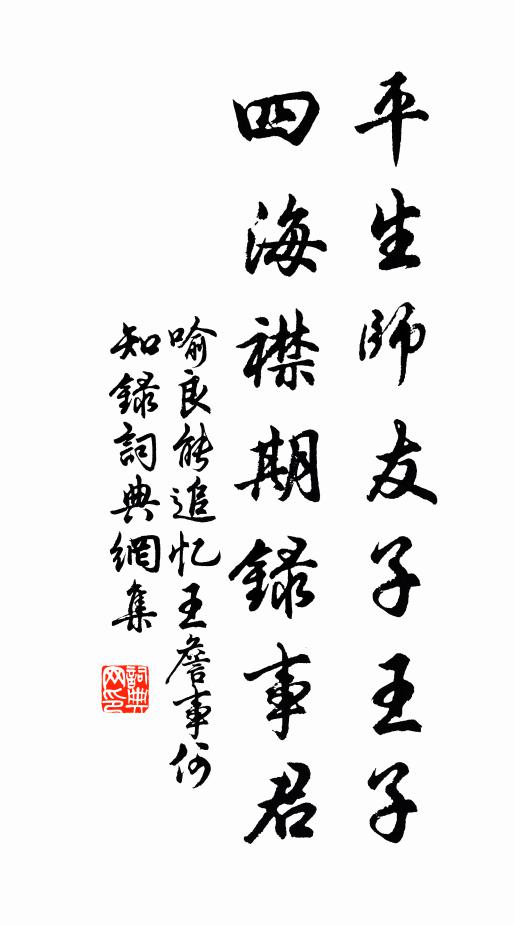 平生師友子王子
四海襟期録事君
喻良能追忆王詹事何
知録詞典網集
詞典网印